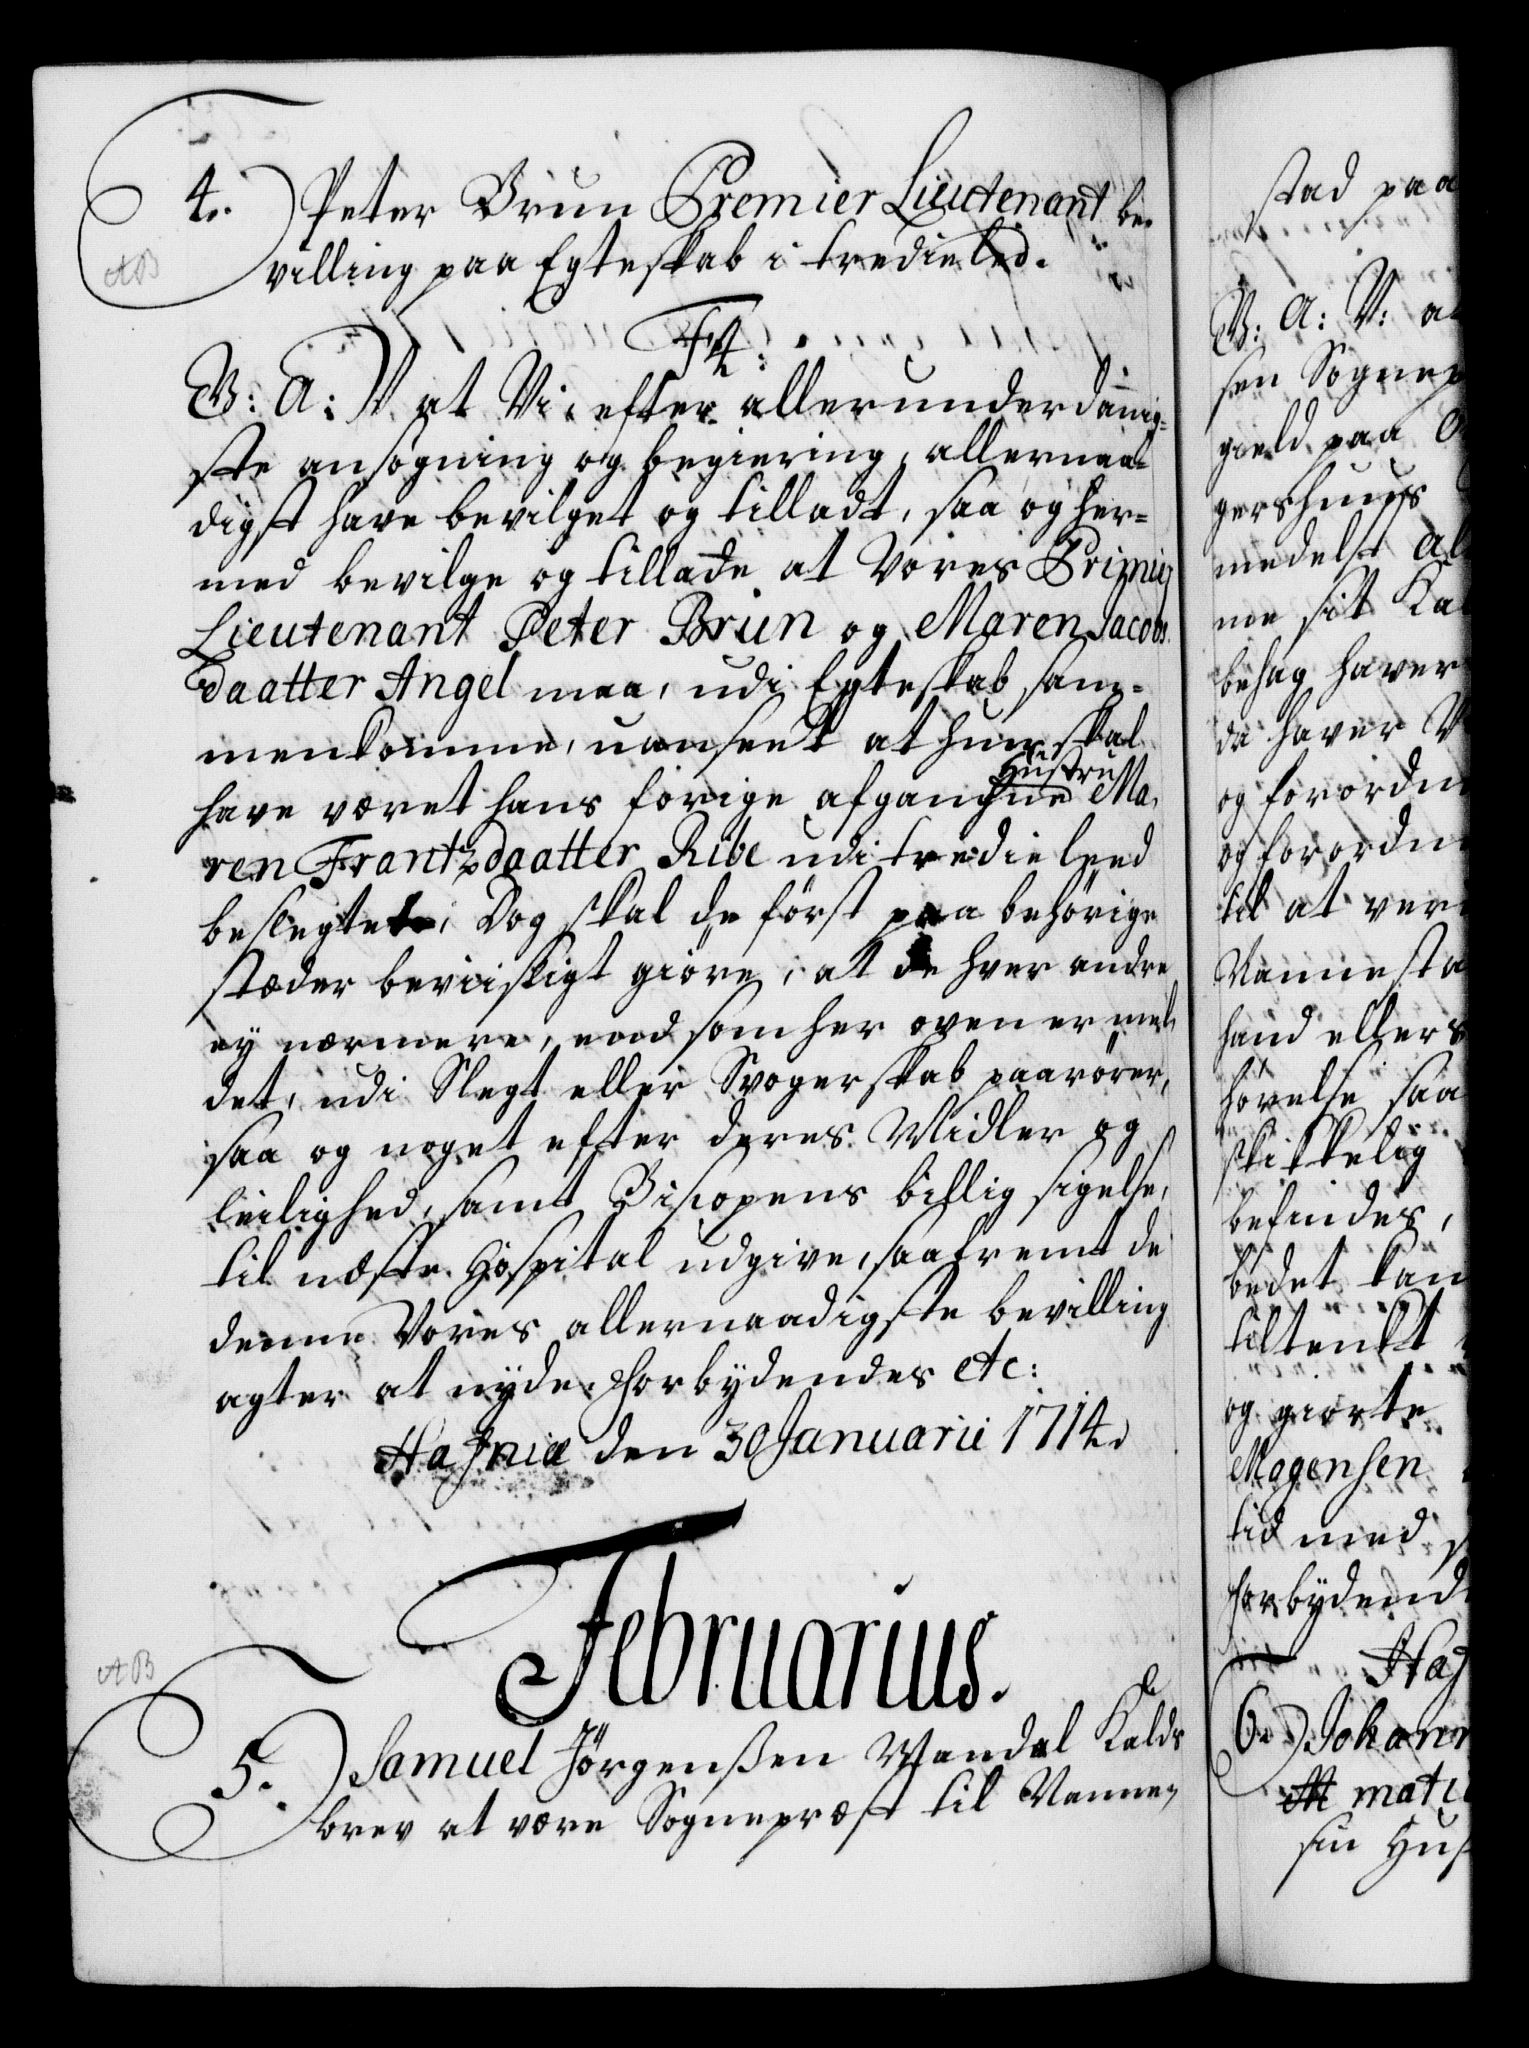 4. Peter Brun Premier Lieutenant be-
AB
villing paa Egteskab i tredie led.
F4:
V: A: V at Vi, efter allerunderdannig-
ste ansøgning og begiering, allernaa-
digst have bevilget og tilladt, saa og her-
med bevilge og tillade at Vores Primier
Lieutenant Peter Brun og Maren Jacobs
daatter Angel maa, udi Egteskab sam-
menkomme, uanseet at hun skal
have været hans forige afgangne Hustru Ma-
ren Frantzdaatter Ribe udi tredie leed
beslegtet; Dog skal de först paa behörige
stæder beviisligt giöre, at de hver andre
ey nærmere, end som her oven er mel-
det, udi Slegt eller Svogerskab paarörer,
saa og noget efter deres Midler og
leilighed, samt Biscopens billig sigelse,
til næste Hospital udgive, saafremt de
denne Vores allernaadigste bevilling
agter at nyde. Forbydendes etc:
Hafniæ den 30 Januarii 1714.
Februarius.
AB
5. Samuel Jörgenßen Wandal Kalds
brev at være Sognepræst til Nanne-
stad paa
V: A: V: at
sen Sognep
gield paa
gershuus
medelst al
me sit Kal
behag haver
da haver V
og forordn
og forordn
til at vere
Nannesta
hand ellers
hörelse saa
skikkelig
befindes,
bedet kan
tiltenkt
og giorte
Magensen
tid med
Forbydend
Haf
6. Johann
mati
sin Hus